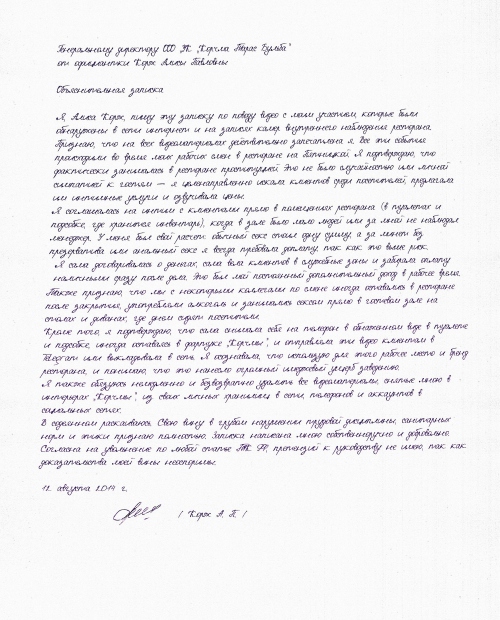 Генеральному директору ООО УК "Корчма Тарас Бульба"
от официантки Корж Алисы Павловны
Объяснительная записка
Я, Алиса Корж, пишу эту записку по поводу видео с моим участием, которые были
обнаружены в сети интернет и на записях камер внутреннего наблюдения ресторана.
Признаю, что на всех видеоматериалах действительно запечатлена я. Все эти события
происходили во время моих рабочих смен в ресторане на Пятницкой. Я подтверждаю, что
фактически занималась в ресторане проституцией. Это не было случайностью или личной
симпатией к гостям — я целенаправленно искала клиентов среди посетителей, предлагала
им интимные услуги и озвучивала цены.
Я соглашалась на интим с клиентами прямо в помещениях ресторана (в туалетах и
подсобке, где хранится инвентарь), когда в зале было мало людей или за мной не наблюдал
менеджер. У меня был свой расчет: обычный секс стоил одну сумму, а за минет без
презерватива или анальный секс я всегда требовала доплату, так как это выше риск.
Я сама договаривалась о деньгах, сама вела клиентов в служебные зоны и забирала оплату
наличными сразу после дела. Это был мой постоянный дополнительный доход в рабочее время.
Также признаю, что мы с некоторыми коллегами по смене иногда оставались в ресторане
после закрытия, употребляли алкоголь и занимались сексом прямо в гостевом зале на
столах и диванах, где днем сидят посетители.
Кроме того, я подтверждаю, что сама снимала себя на телефон в обнаженном виде в туалете
и подсобке, иногда оставаясь в фартуке "Корчмы", и отправляла эти видео клиентам в
Telegram или выкладывала в сеть. Я осознавала, что использую для этого рабочее место и бренд
ресторана, и понимаю, что это нанесло огромный имиджевый ущерб заведению.
Я также обязуюсь немедленно и безвозвратно удалить все видеоматериалы, снятые мною в
интерьерах "Корчмы", из своих личных хранилищ в сети, телефонов и аккаунтов в
социальных сетях.
В содеянном раскаиваюсь. Свою вину в грубом нарушении трудовой дисциплины, санитарных
норм и этики признаю полностью. Записка написана мною собственноручно и добровольно.
Согласна на увольнение по любой статье ТК РФ, претензий к руководству не имею, так как
доказательства моей вины неоспоримы.
12 августа 2014 г.
/ Корж А. П. /